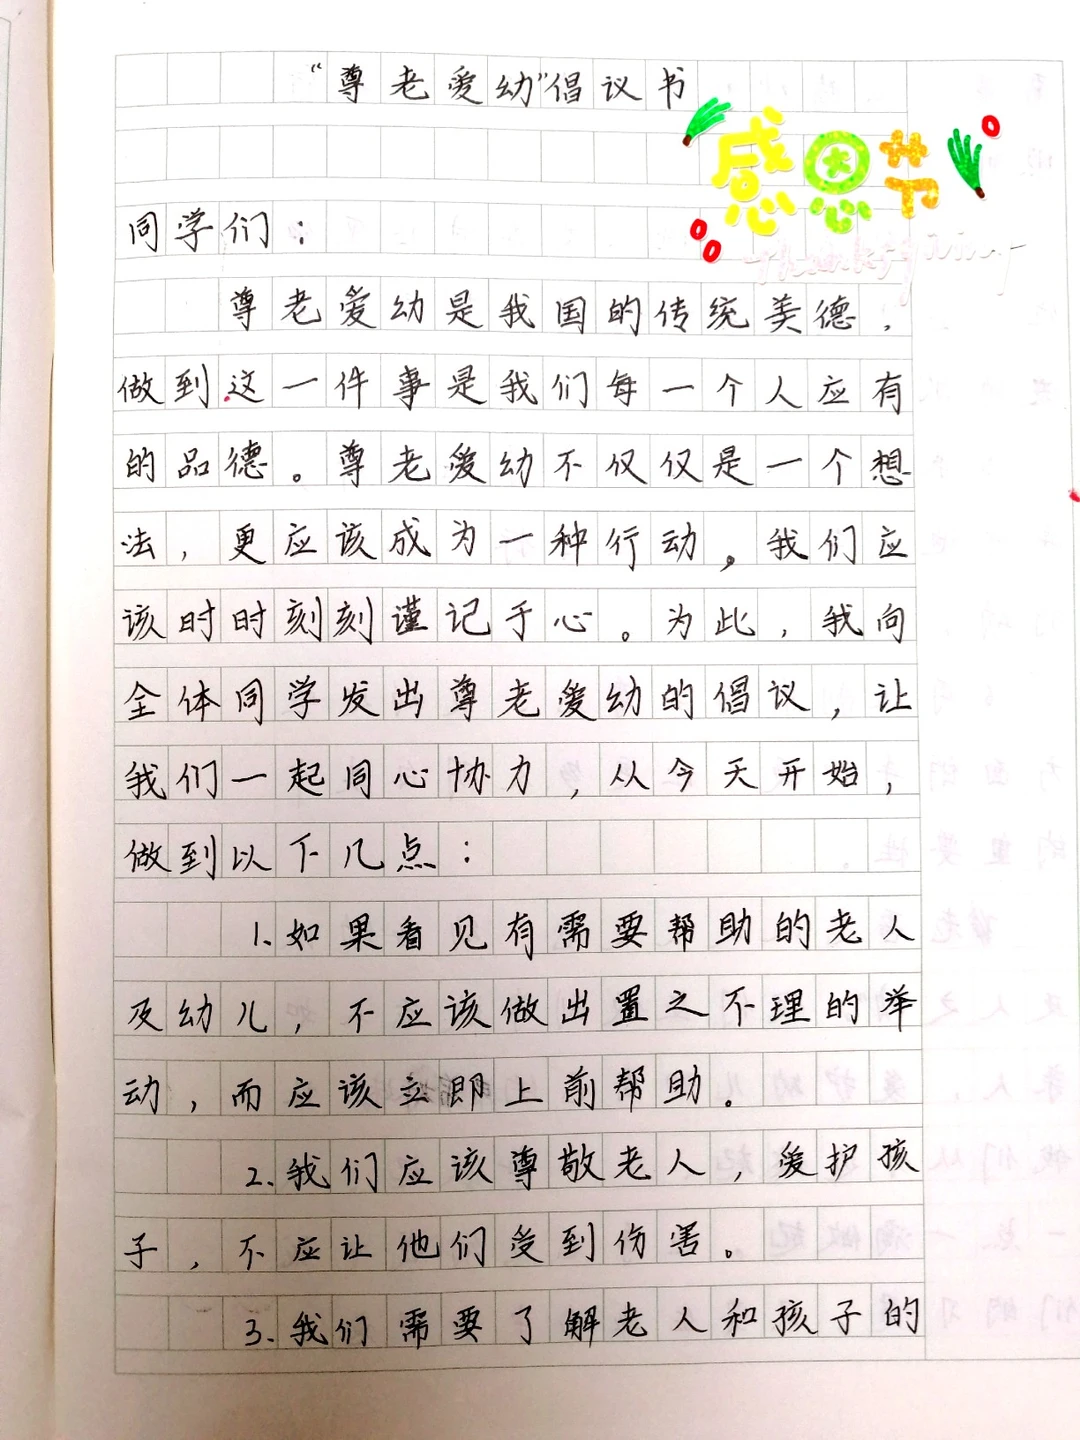 “尊老爱幼”倡议书
感恩节
Thanksgiving
同学们：
尊老爱幼是我国的传统美德，
做到这一件事是我们每一个人应有
的品德。尊老爱幼不仅仅是一个想
法，更应该成为一种行动。我们应
该时时刻刻谨记于心。为此，我向
全体同学发出尊老爱幼的倡议，让
我们一起同心协力，从今天开始，
做到以下几点：
1.如果看见有需要帮助的老人
及幼儿，不应该做出置之不理的举
动，而应该立即上前帮助。
2.我们应该尊敬老人，爱护孩
子，不应让他们受到伤害。
3.我们需要了解老人和孩子的